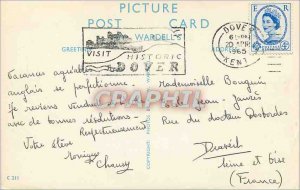 PICTURE
POST CARD
WARDELL'S
VISIT HISTORIC
DOVER
DOVER
6 PM
20 APR
1965
KENT
E R
Vacances agréables
anglais se perfectionne.
Je reviens
avec de bonnes résolutions.
Respectueusement
Votre élève
Monique
Chauvy
Mademoiselle Bouguin
Lycée Jean-Jaurès
Rue du docteur Desbordes
Draveil
Seine et Oise
(France)
CRAPHIC
C 211